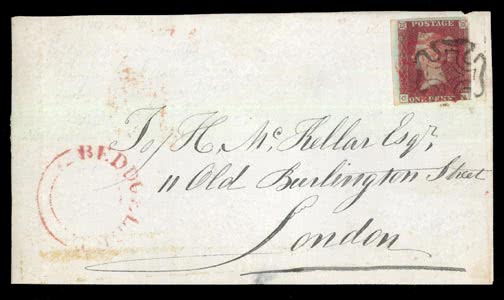 POSTAGE
ONE PENNY
To/ H. Mc. Kellar Esqr.
11 Old Burlington Street
London